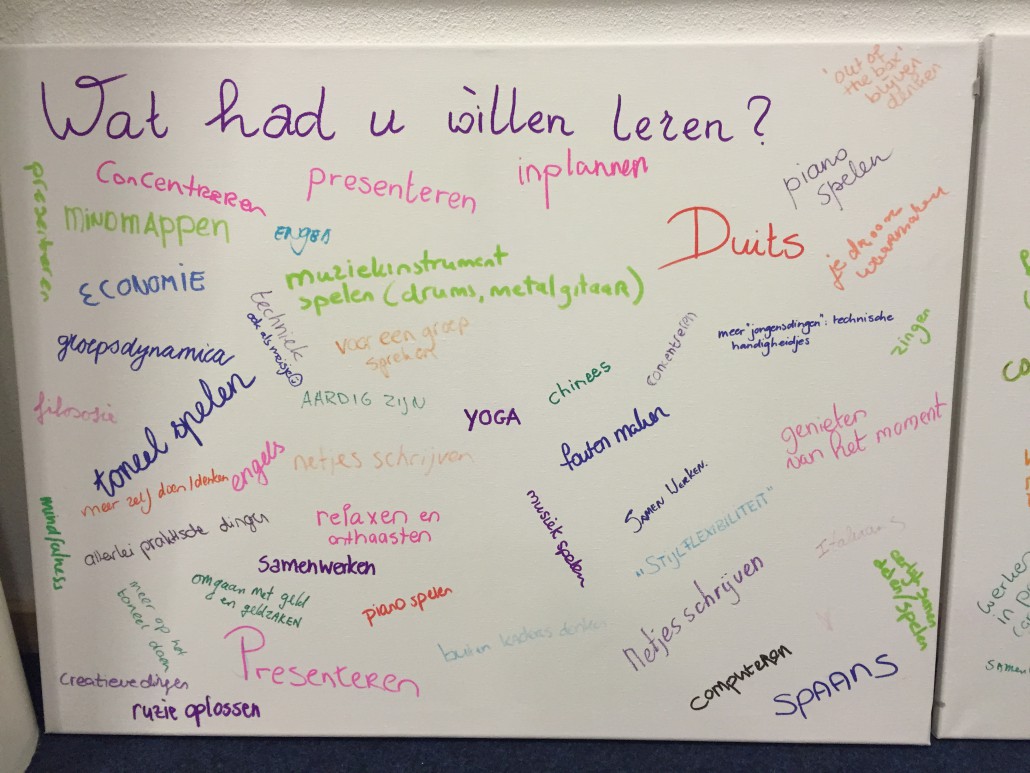 Wat had u willen leren?
'out of
the box'
blijven
denken
presenteren
Concentreren
presenteren
inplannen
piano
spelen
MINDMAPPEN
Duits
je droom
waarmaken
ECONOMIE
muziekinstrument
spelen (drums, metalgitaar)
techniek
ook als meisje
groepsdynamica
voor een groep
spreken
concentreren
meer "jongensdingen": technische
handigheidjes
zingen
filosofie
toneel spelen
AARDIG ZIJN
YOGA
chinees
fouten maken
genieten
van het moment
meer zelf doen/denken
engels
netjes schrijven
mindfulness
allerlei praktische dingen
relaxen en
onthaasten
musiek spelen
Samen Werken.
"STIJLFLEXIBILITEIT"
Italiaans
Samenwerken
omgaan met geld
en geldZAKEN
piano spelen
meer op het
toneel doen
Presenteren
buiten kaders denken
Netjes schrijven
computeren
SPAANS
creatieve dingen
ruzie oplossen